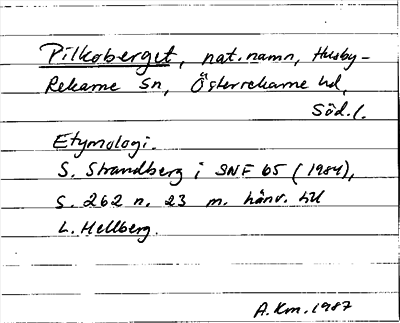 Pilkoberget, nat.namn, Husby-
Rekarne sn, Österrekarne hd,
Söd.l.
Etymologi.
S. Strandberg i SNF 65 (1984),
s. 262 n. 23 m. hänv. till
L. Hellberg.
A.Km.1987